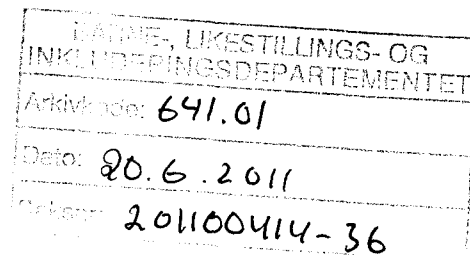 BARNE-, LIKESTILLINGS- OG
INKLUDERINGSDEPARTEMENTET
Arkivkode: 641.01
Dato: 20.6.2011
201100414-36